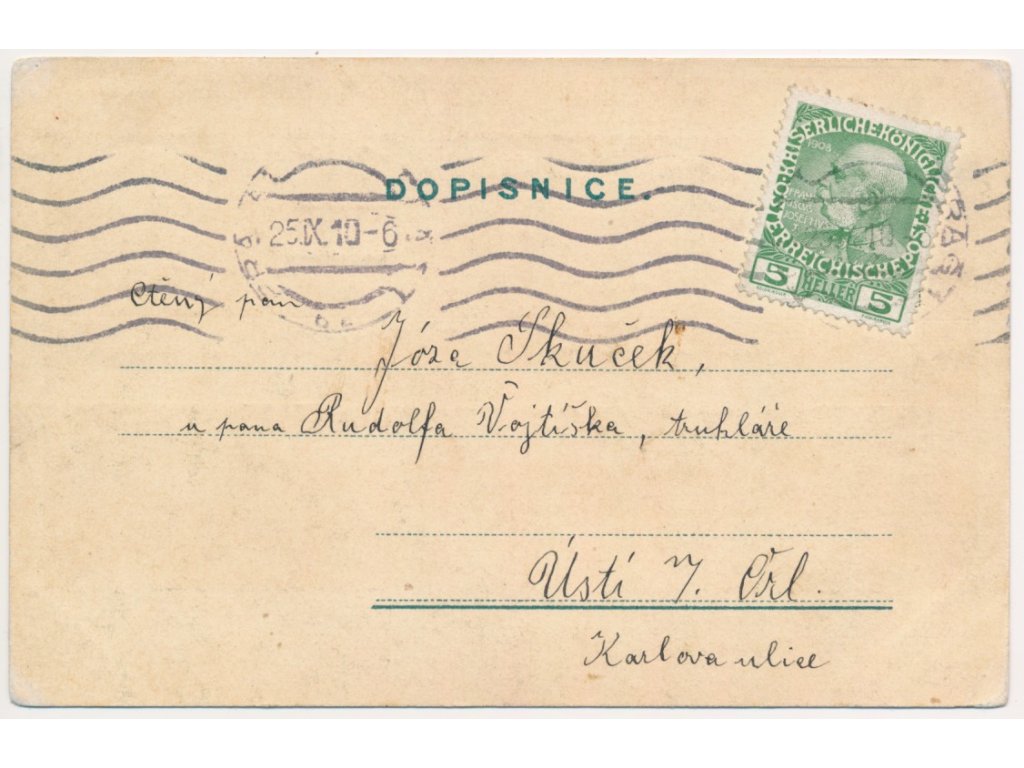 DOPISNICE.
25.IX.10-6
1908
K.K.ÖSTERREICHISCHE POST
5 HELLER 5
Ctěný pan
Józa Skuček,
u pana Rudolfa Vojtíška, truhláře
Ústí n. Orl.
Karlova ulice